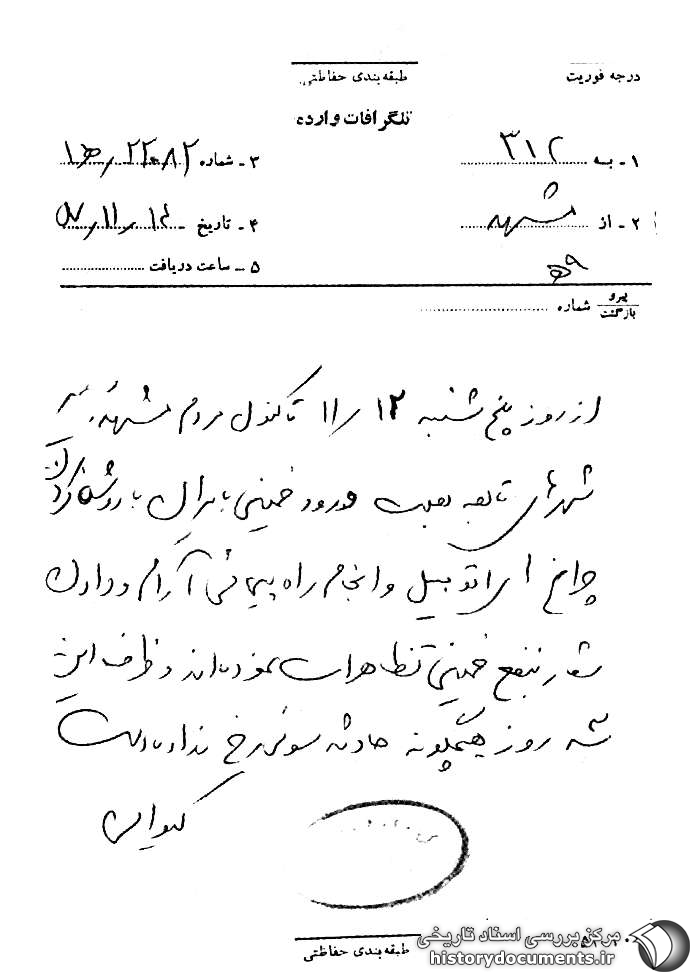 درجه فوریت
طبقه‌بندی حفاظتی
تلگرافات وارده
۱ - به ۳۱۲
۳ - شماره ۲۲۰۸۲ / ۱ه‍
۲ - از مشهد
۴ - تاریخ ۱۴ / ۱۱ / ۵۷
ه‍ ۹
۵ - ساعت دریافت
پیرو
بازگشت
شماره
از روز پنج شنبه ۱۲ / ۱۱ تاکنون مردم مشهد و سایر
شهرهای تابعه بعلت ورود خمینی بایران با روشن کردن
چراغ اتومبیل و انجام راه پیمائی آرام و دادن
شعار بنفع خمینی تظاهرات نموده‌اند و ظرف این
سه روز هیچگونه حادثه سوئی رخ نداده است
کیوان
طبقه‌بندی حفاظتی
مرکز بررسی اسناد تاریخی
historydocuments.ir